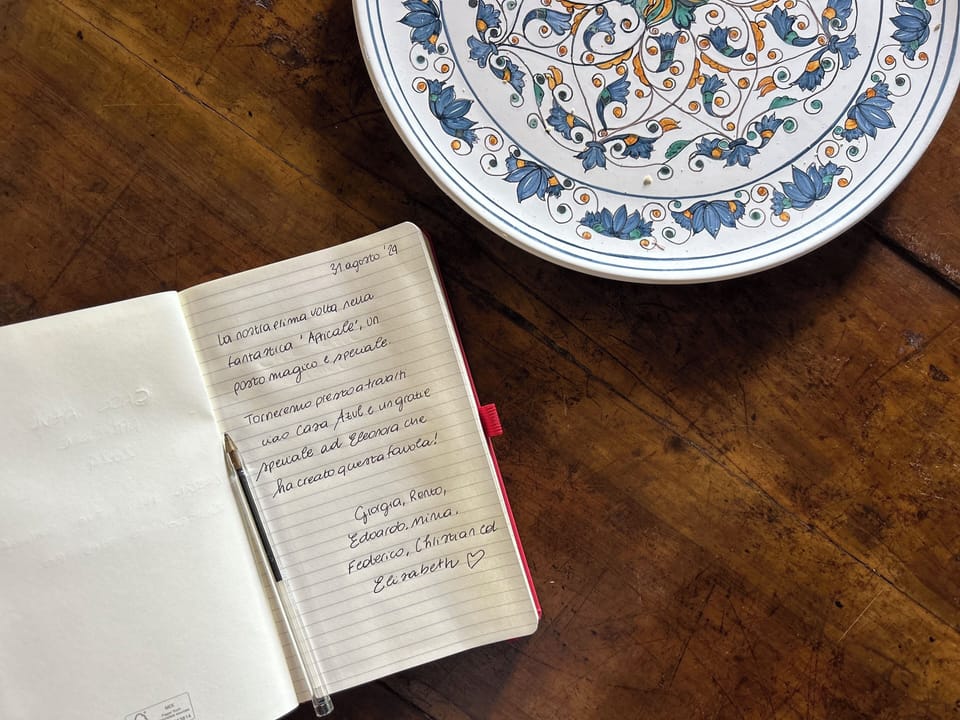 31 agosto '24
La nostra prima volta nella
fantastica 'Apricale', un
posto magico e speciale.
Torneremo presto a trovarti
ciao Casa Azul e un grazie
speciale ad Eleonora che
ha creato questa favola!
Giorgia,
Edoardo, Mina,
Federico, Christian ed
Elisabeth ♡
MIX